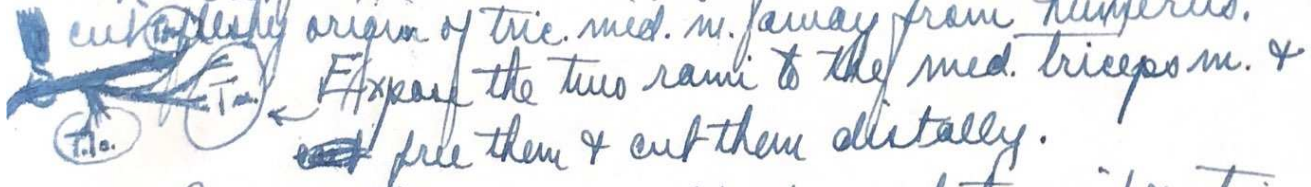 cut fleshy origin of tric. med. m. away from humerus.
Expose the two rami to the med. triceps m. &
free them & cut them distally.